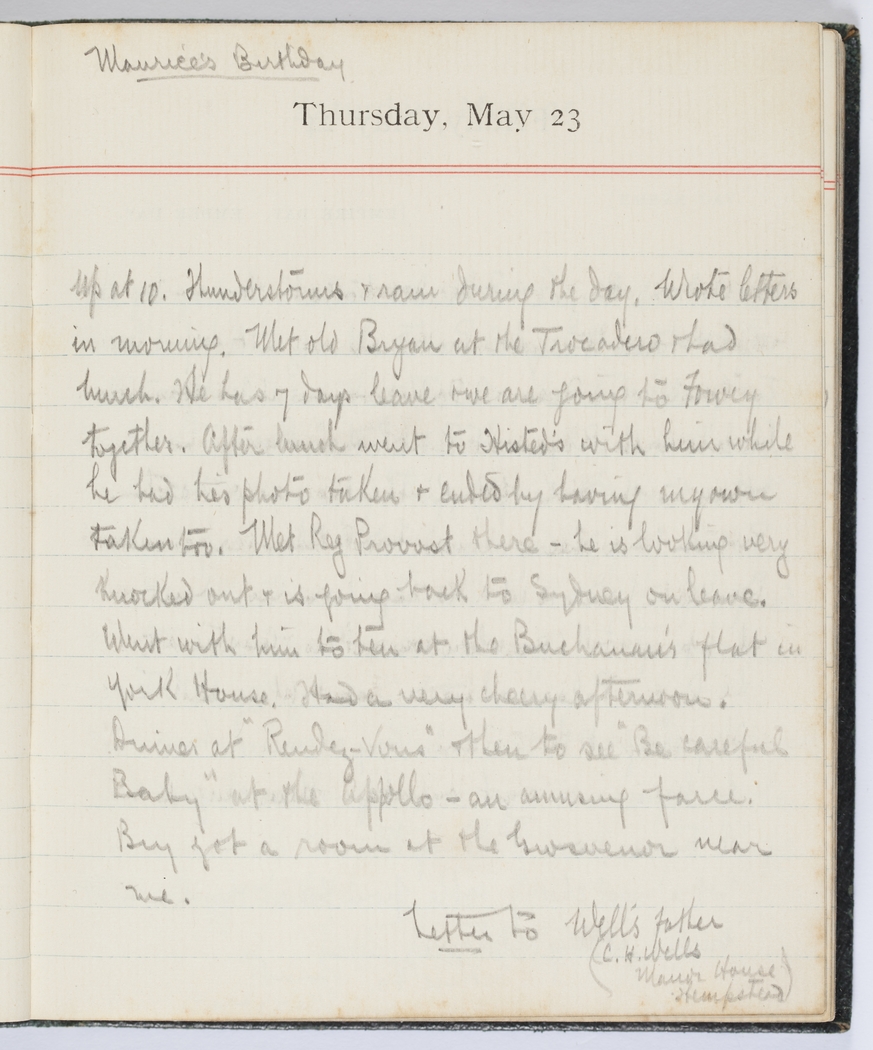 Maurice's Birthday
Thursday, May 23
Up at 10. Thunderstorms & rain during the day. Wrote letters
in morning. Met old Bryan at the Trocadero & had
lunch. He has 7 days leave & we are going to Fowey
together. After lunch went to Histed's with him while
he had his photo taken & ended by having my own
taken too. Met Reg Provost there - he is looking very
knocked out & is going back to Sydney on leave.
Went with him to tea at the Buchanan's flat in
York House. Had a very cheery afternoon.
Dinner at "Rendez-Vous" & then to see "Be careful
Baby" at the Appollo - an amusing farce.
Bry got a room at the Grosvenor near
me.
Letter to Well's father
(C. H. Wells
Manor House
Hempstead)